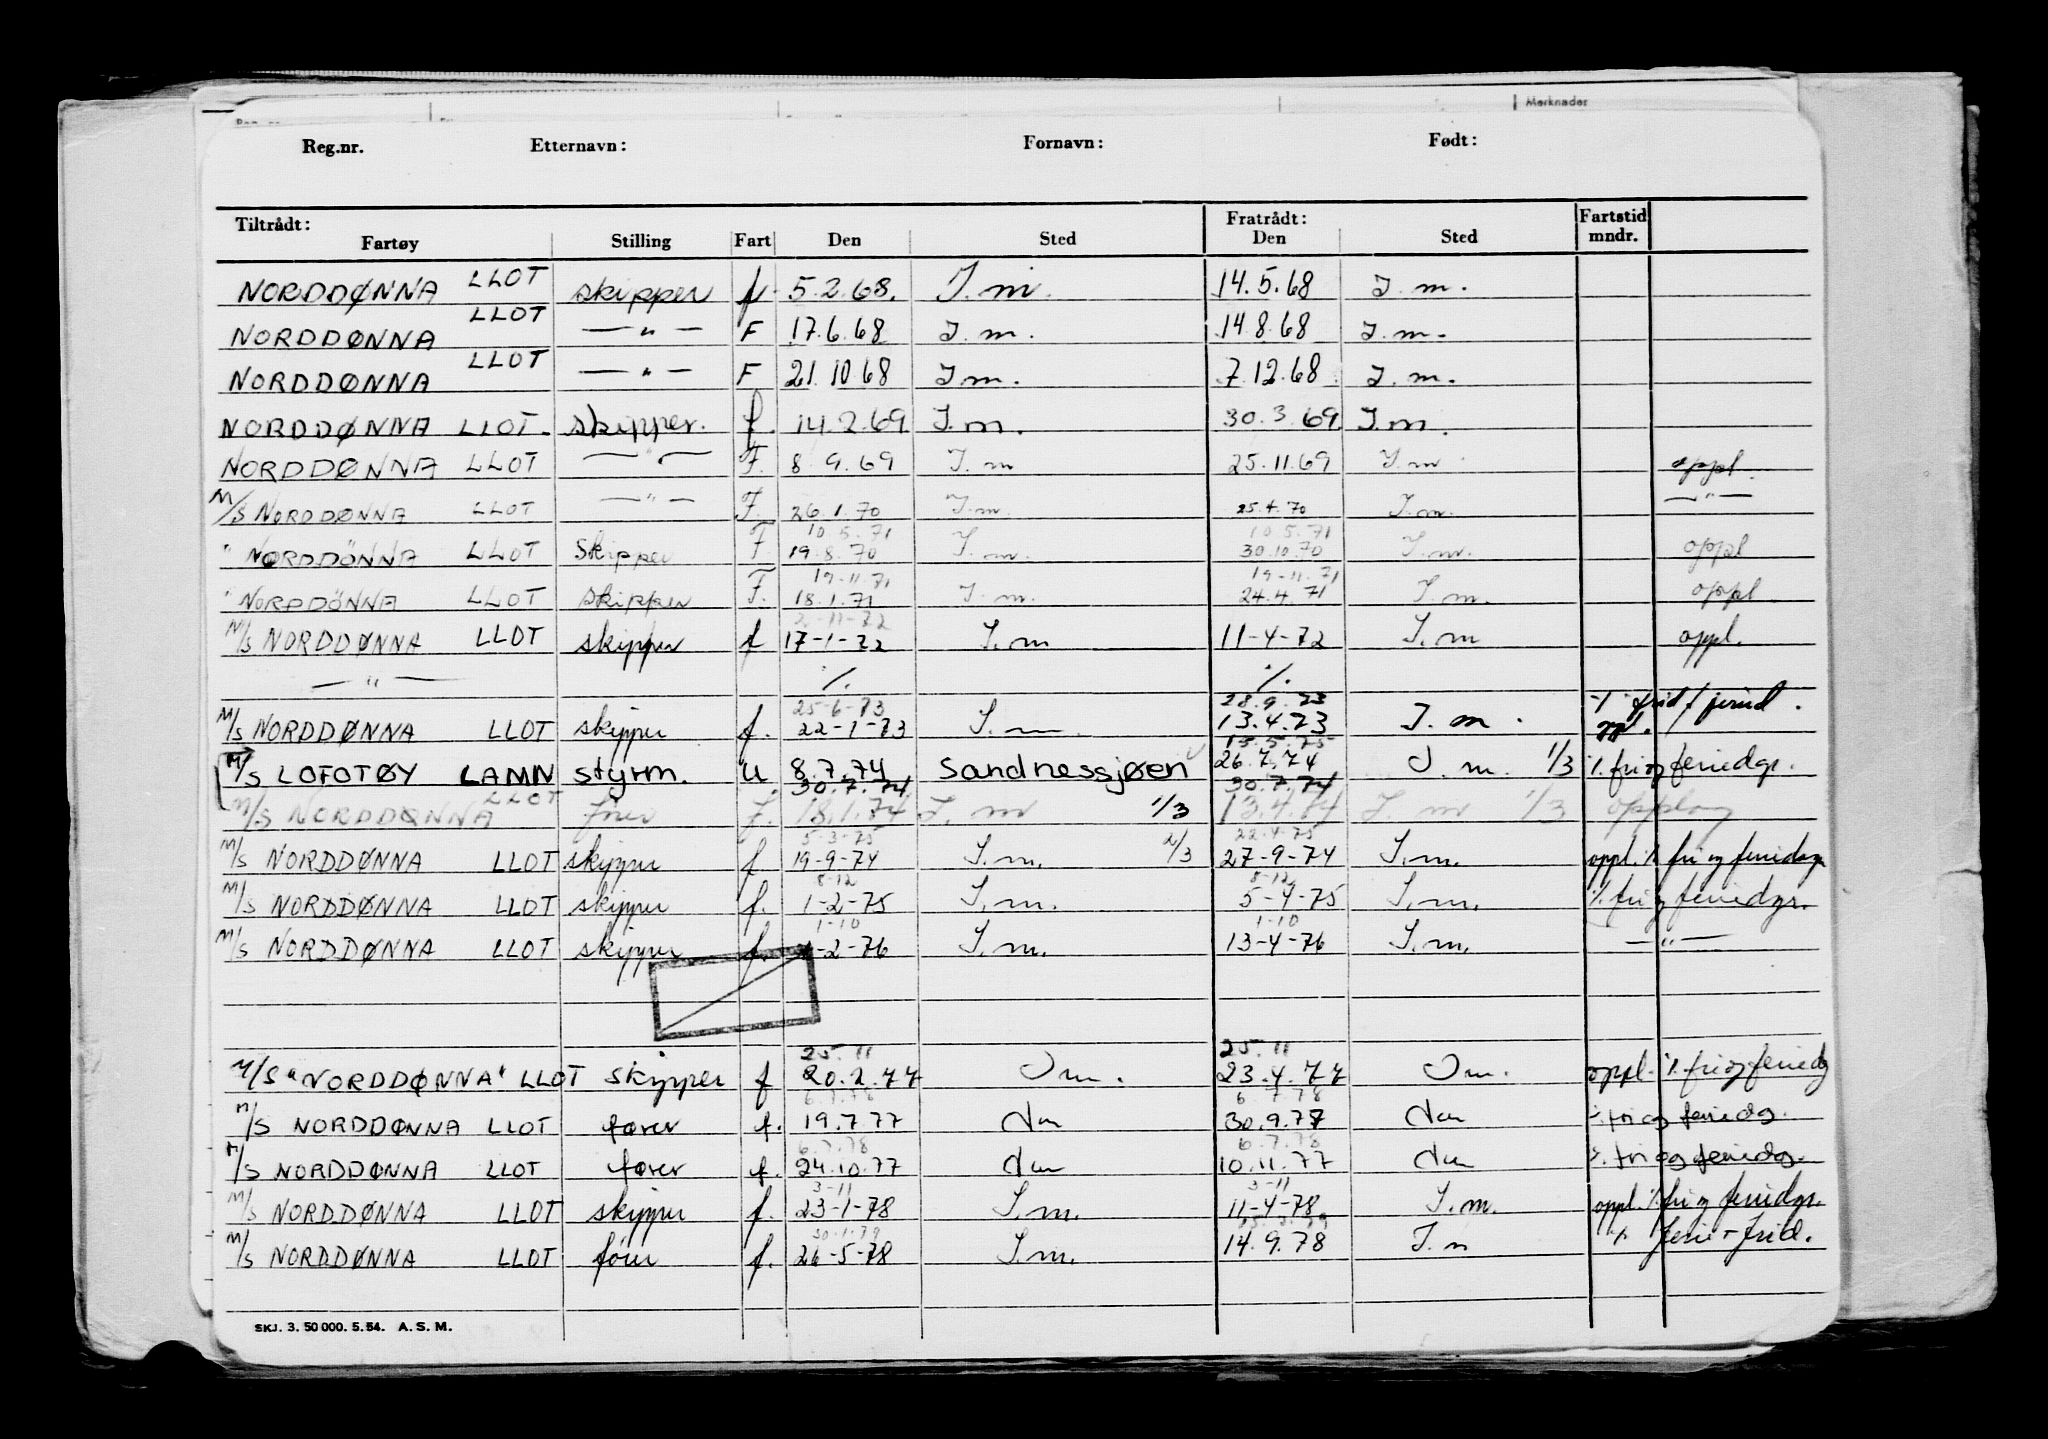 Merknader
Reg.nr. Etternavn: Fornavn: Født:
Tiltrådt: Fratrådt: Fartstid
Fartøy Stilling Fart Den Sted Den Sted mndr.
NORDDØNNA LLOT skipper f. 5.2.68. I.m. 14.5.68 I.m.
NORDDØNNA LLOT —"— F 17.6.68 I.m. 14.8.68 I.m.
NORDDØNNA LLOT —"— F 21.10 68 I m. 7.12.68 I.m.
NORDDØNNA LLOT. skipper. f. 14.2.69 I.m. 30.3.69 I.m.
NORDDØNNA LLOT —"— F. 8 9.69 I.m 25.11.69 I.m oppl.
M/S NORDDØNNA LLOT —"— F. 26.1.70 I.m. 25.4.70 I.m. —"—
10.5.71 10.5.71
" NORDDÖNNA LLOT Skipper F. 19.8.70 I.m. 30.10.70 I.m. oppl
19.11.71 19.11.71
" NORDDÖNNA LLOT skipper F. 18.1.71 I.m. 24.4.71 I.m. oppl
2-11-72
M/S NORDDØNNA LLOT skipper f 17-1-72 I.m 11-4-72 I.m oppl.
—"— ./. ./.
25-6-73 28.9.73
M/S NORDDØNNA LLOT skipper f. 22-1-73 I.m 13.4.73 I.m. oppl.
15.5.75
M/S LOFOTØY LAMN styrm. u 8.7.74 Sandnessjøen 26.7.74 I.m. 1/3 ./. fri og feriedgr.
30.7.74 30.7.74
M/S NORDDØNNA LLOT fører f. 18.1.74 I.m 1/3 13.4.74 I.m 1/3 opplag
5-3-75 22.4.75
M/S NORDDØNNA LLOT skipper f 19-9-74 I.m. 2/3 27-9-74 I.m. oppl. ./. fri og feriedgr
8-12 8-12
M/S NORDDØNNA LLOT skipper f. 1-2-75 I.m. 5-4-75 I.m. ./. fri og feriedgr.
1-10 1-10
M/S NORDDØNNA LLOT skipper f. 1-2-76 I.m. 13-4-76 I.m. —"—
25.11 25.11
M/S "NORDDØNNA" LLOT skipper f 20.2.77 Im. 23.4.77 Im. oppl. ./. fri og feriedg
6.7.78 6.7.78
M/S NORDDØNNA LLOT fører f. 19.7.77 30.9.77 ./. fri og feriedg.
6.7.78 6.7.78
M/S NORDDØNNA LLOT fører f. 24.10.77 10.11.77 ./. fri og feriedg.
3-11 3-11
M/S NORDDØNNA LLOT skipper f. 23-1-78 I.m. 11-4-78 I.m. oppl. ./. fri og feriedgr.
30.1.79
M/S NORDDØNNA LLOT förer f. 26-5-78 I.m. 14.9.78 I.m ./. ferie + frid.
SKJ. 3. 50 000. 5. 54. A. S. M.